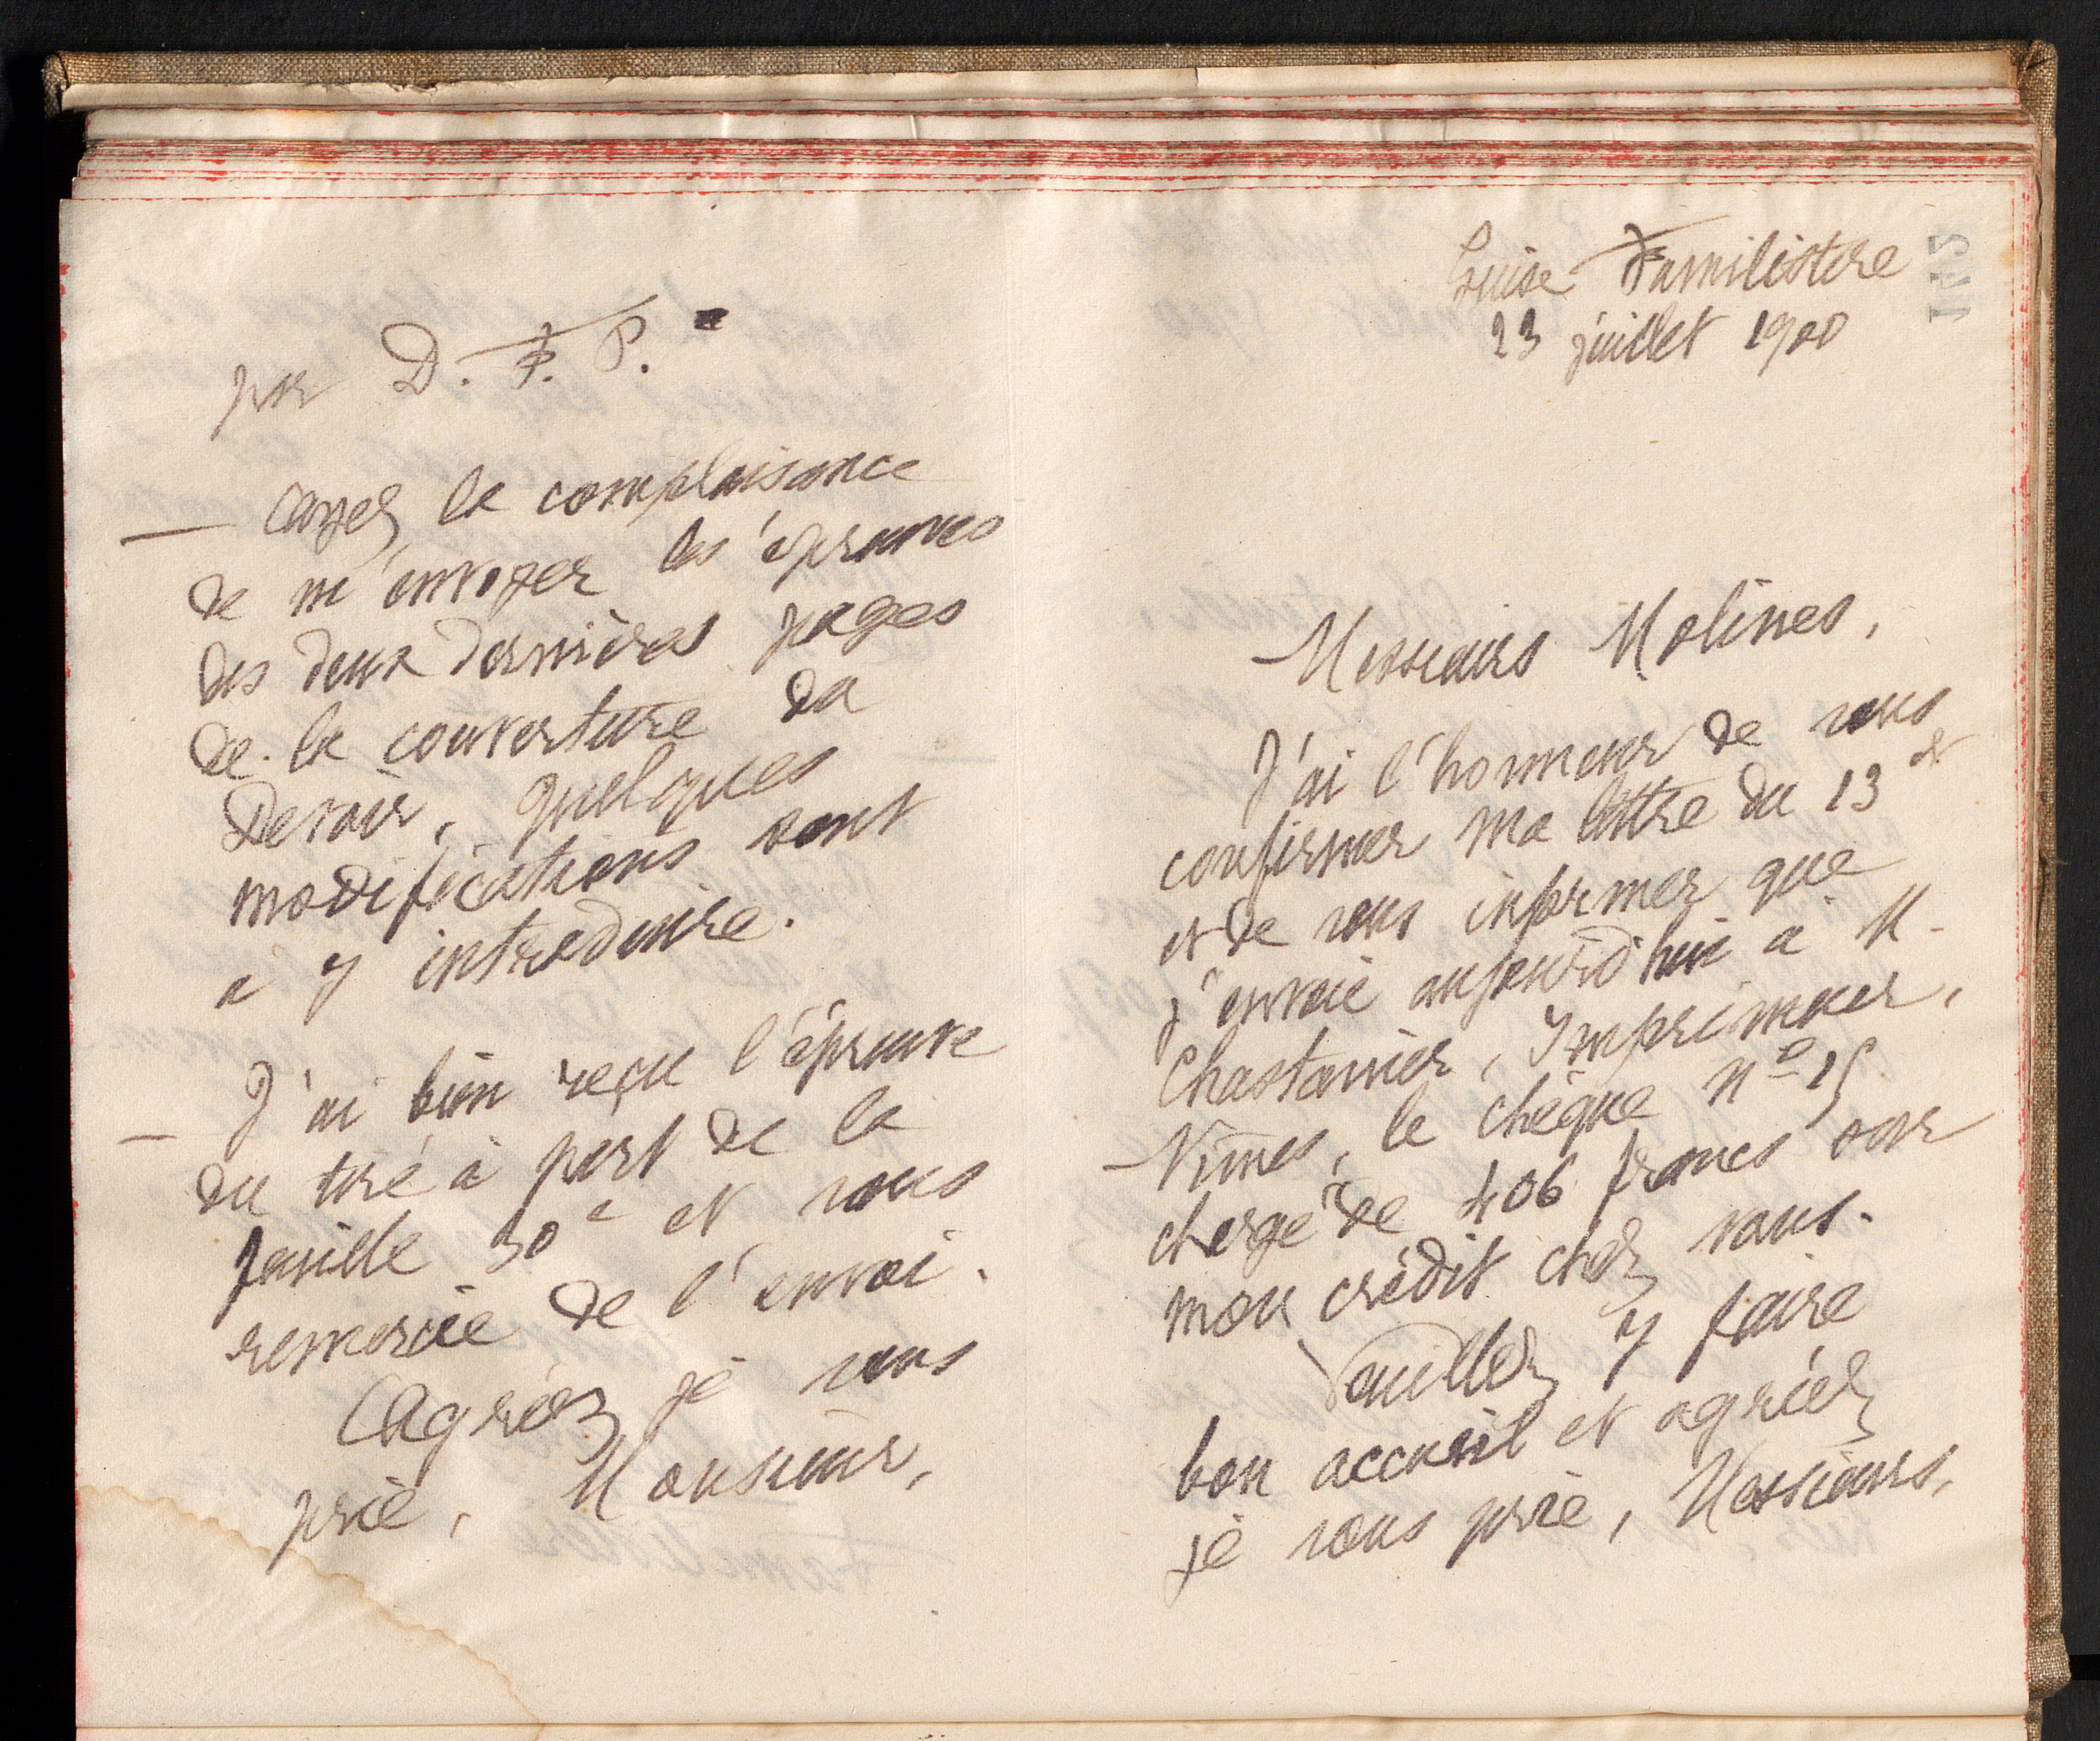 par D. F. P.
— Ayez la complaisance
de m'envoyer les épreuves
des deux dernières pages
de la couverture du
Devoir, quelques
modifications sont
à y introduire.
— J'ai bien reçu l'épreuve
du tiré à part de la
feuille 30e et vous
remercie de l'envoi.
Agréez je vous
prie, Monsieur,
Guise Familistère
23 juillet 1900
Messieurs Molines,
J'ai l'honneur de vous
confirmer ma lettre du 13 ct
et de vous informer que
j'envoie aujourd'hui à M.
Chastanier, Imprimeur,
Nîmes, le chèque No 15
chargé de 406 francs sur
mon crédit chez vous.
Veuillez y faire
bon accueil et agréez
je vous prie, Messieurs,